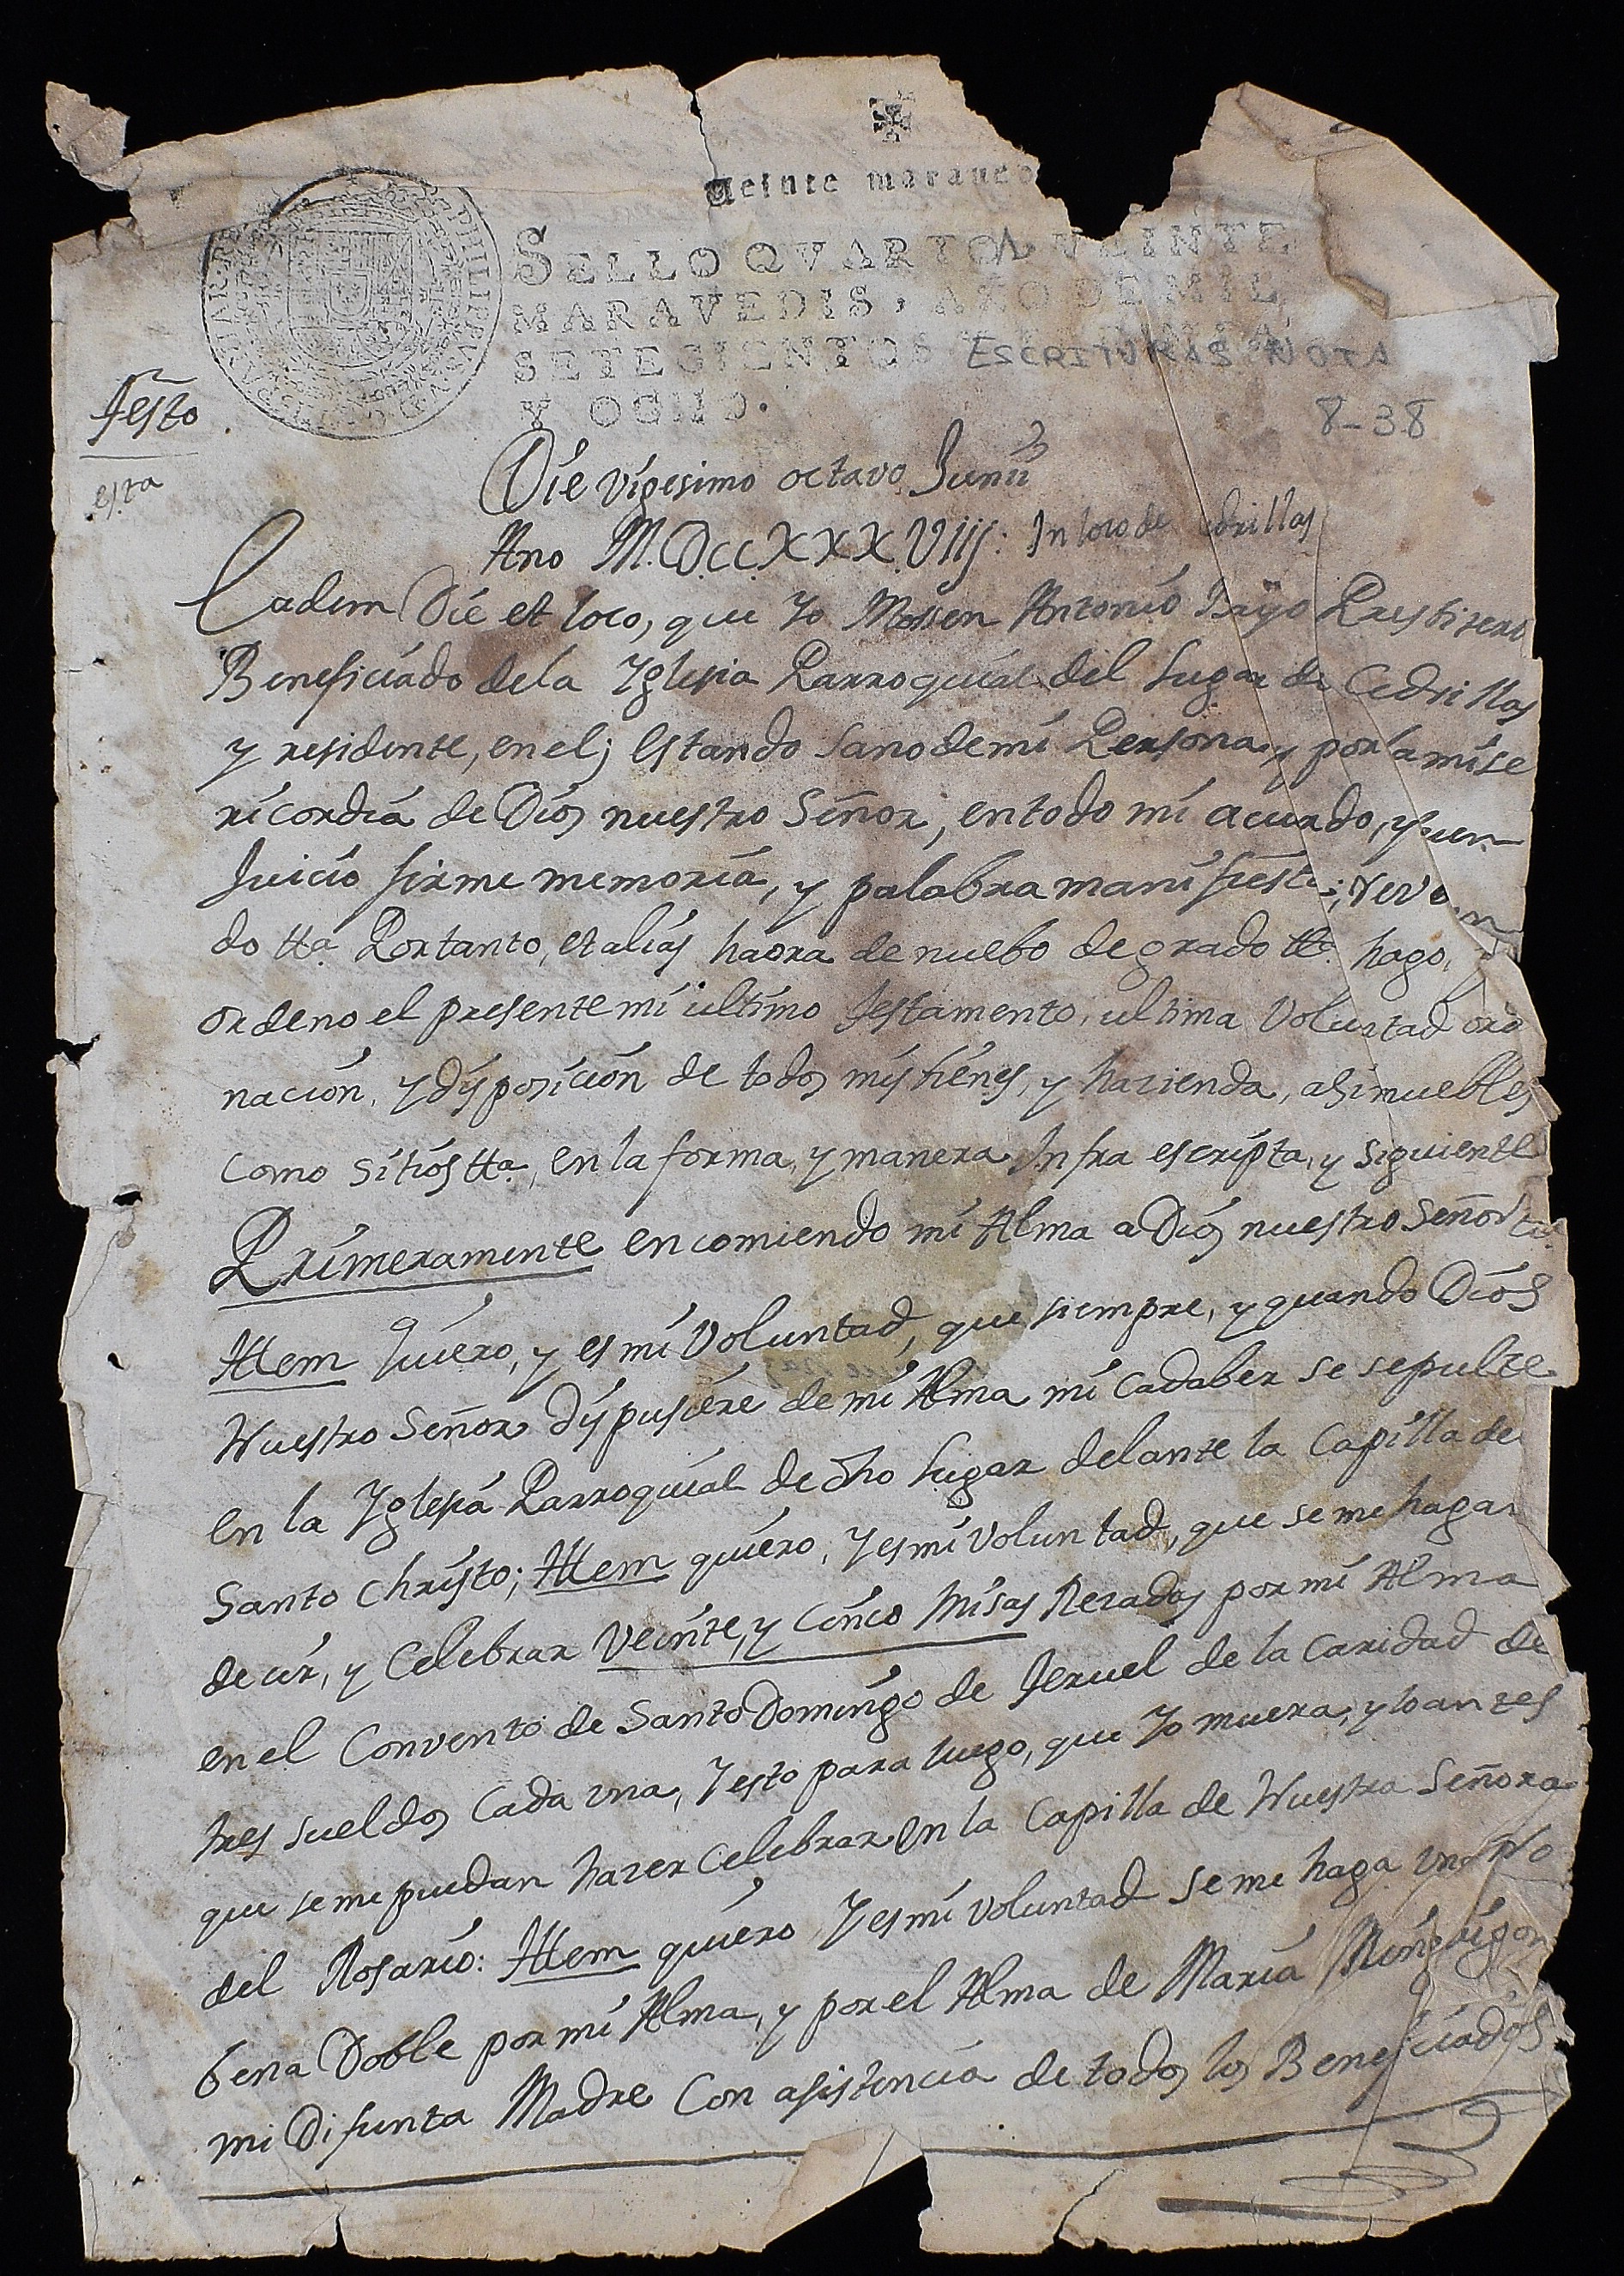 Veinte maraved
SELLO QVARTO, VEINTE
MARAVEDIS, AÑO DE MIL
SETECIENTOS Y TREINTA
Y OCHO.
ESCRITURAS NOTA
8-38
PHILIPPVS V D G
Testo
esta
Die vigesimo octavo Junii
Ano M.DCCXXXVIIJ: In loco de Cedrillas
Eadem Die et loco, que Yo Mossen Antonio Presbitero
Beneficiado dela Yglesia Parroquial del Lugar de Cedrillas
y residente, en el; Estando sano de mi Persona, y por la mise
ricordia de Dios nuestro Señor, en todo mi acuerdo, y buen
Juicio firme memoria, y palabra manifiesta; revocan
do tta. Portanto, et alias haora de nuebo de grado tta. hago,
ordeno el presente mi ultimo Testamento, ultima Voluntad ord
nacion, y disposicion de todos mis bienes, y hazienda, asi muebles
como sitios tta., en la forma, y manera Infra escripta, y siguiente
Primeramente encomiendo mi Alma a Dios nuestro Señor tta.
Ittem quiero, y es mi Voluntad, que siempre, y quando Dios
Nuestro Señor dispusiere de mi Alma mi Cadaber se sepulte
en la Yglesia Parroquial de dho Lugar delante la Capilla de
Santo Christo; Ittem quiero, Y es mi Voluntad, que se me hagan
decir, y Celebrar Veinte, y Cinco Misas Rezadas por mi Alma
en el Convento de Santo Domingo de Teruel de la Caridad de
tres sueldos Cada una, Y esto para luego, que Yo muera, y lo antes
que se me puedan hazer Celebrar en la Capilla de Nuestra Señora
del Rosario: Ittem quiero Y es mi voluntad se me haga una No
bena Doble por mi Alma, y por el Alma de Maria
mi Difunta Madre Con asistencia de todos los Beneficiados